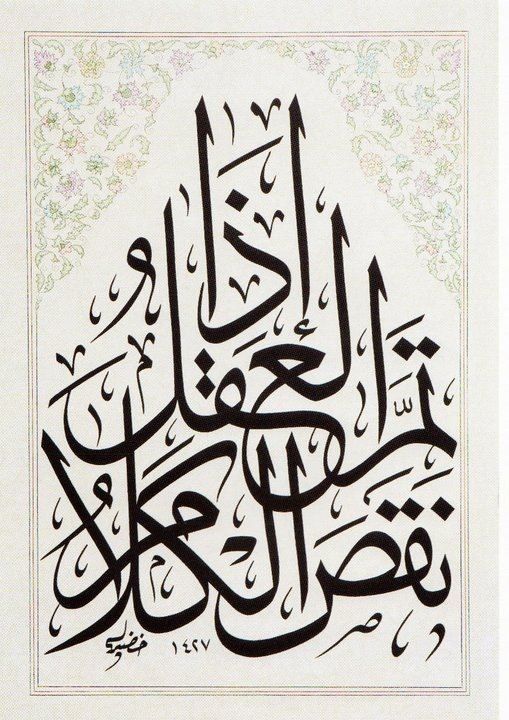 إذا
تمَّ العقل
نقص الكلام
١٤٢٧